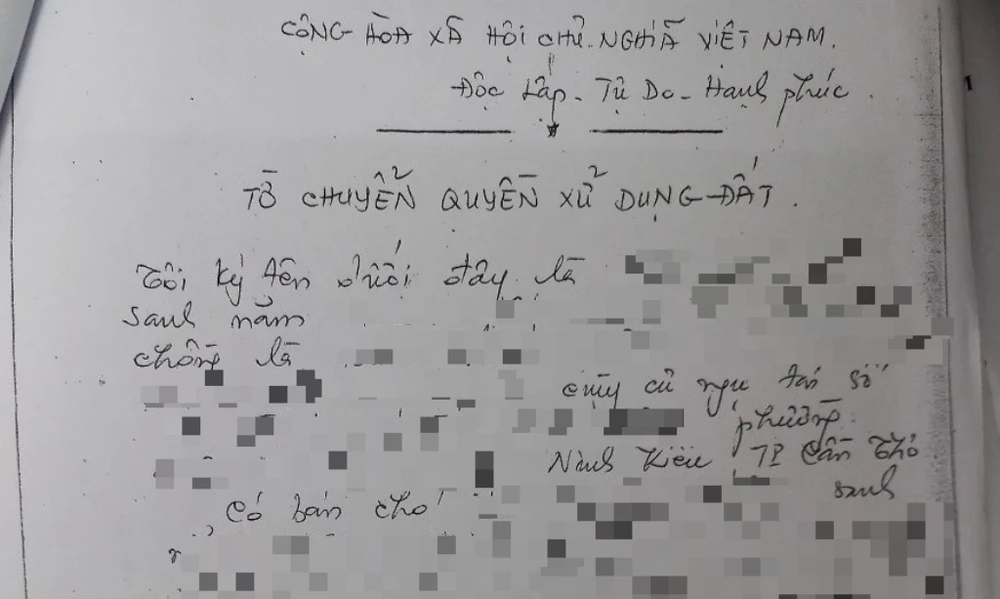 CỘNG HÒA XÃ HỘI CHỦ NGHĨA VIỆT NAM.
Độc Lập - Tự Do - Hạnh phúc.
TỜ CHUYỂN QUYỀN XỬ DỤNG ĐẤT.
Tôi ký tên dưới đây là
sanh năm
chồng là
cùng cư ngụ tại số
phường
Ninh Kiều TP Cần Thơ
sanh
, có bán cho
1